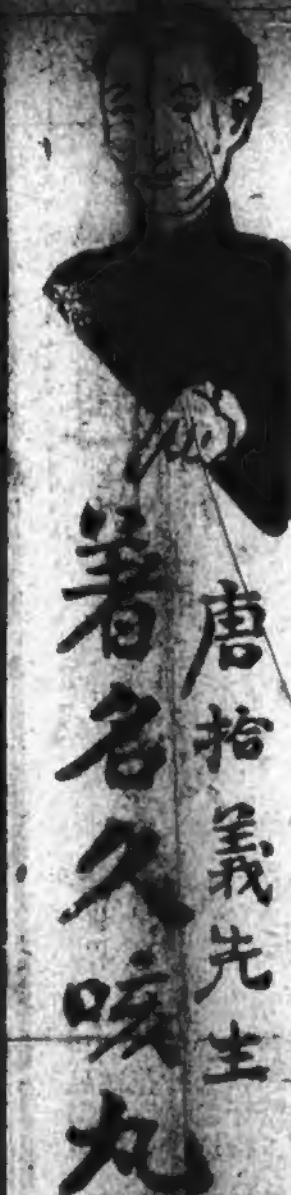 唐拾義先生
著名久咳丸